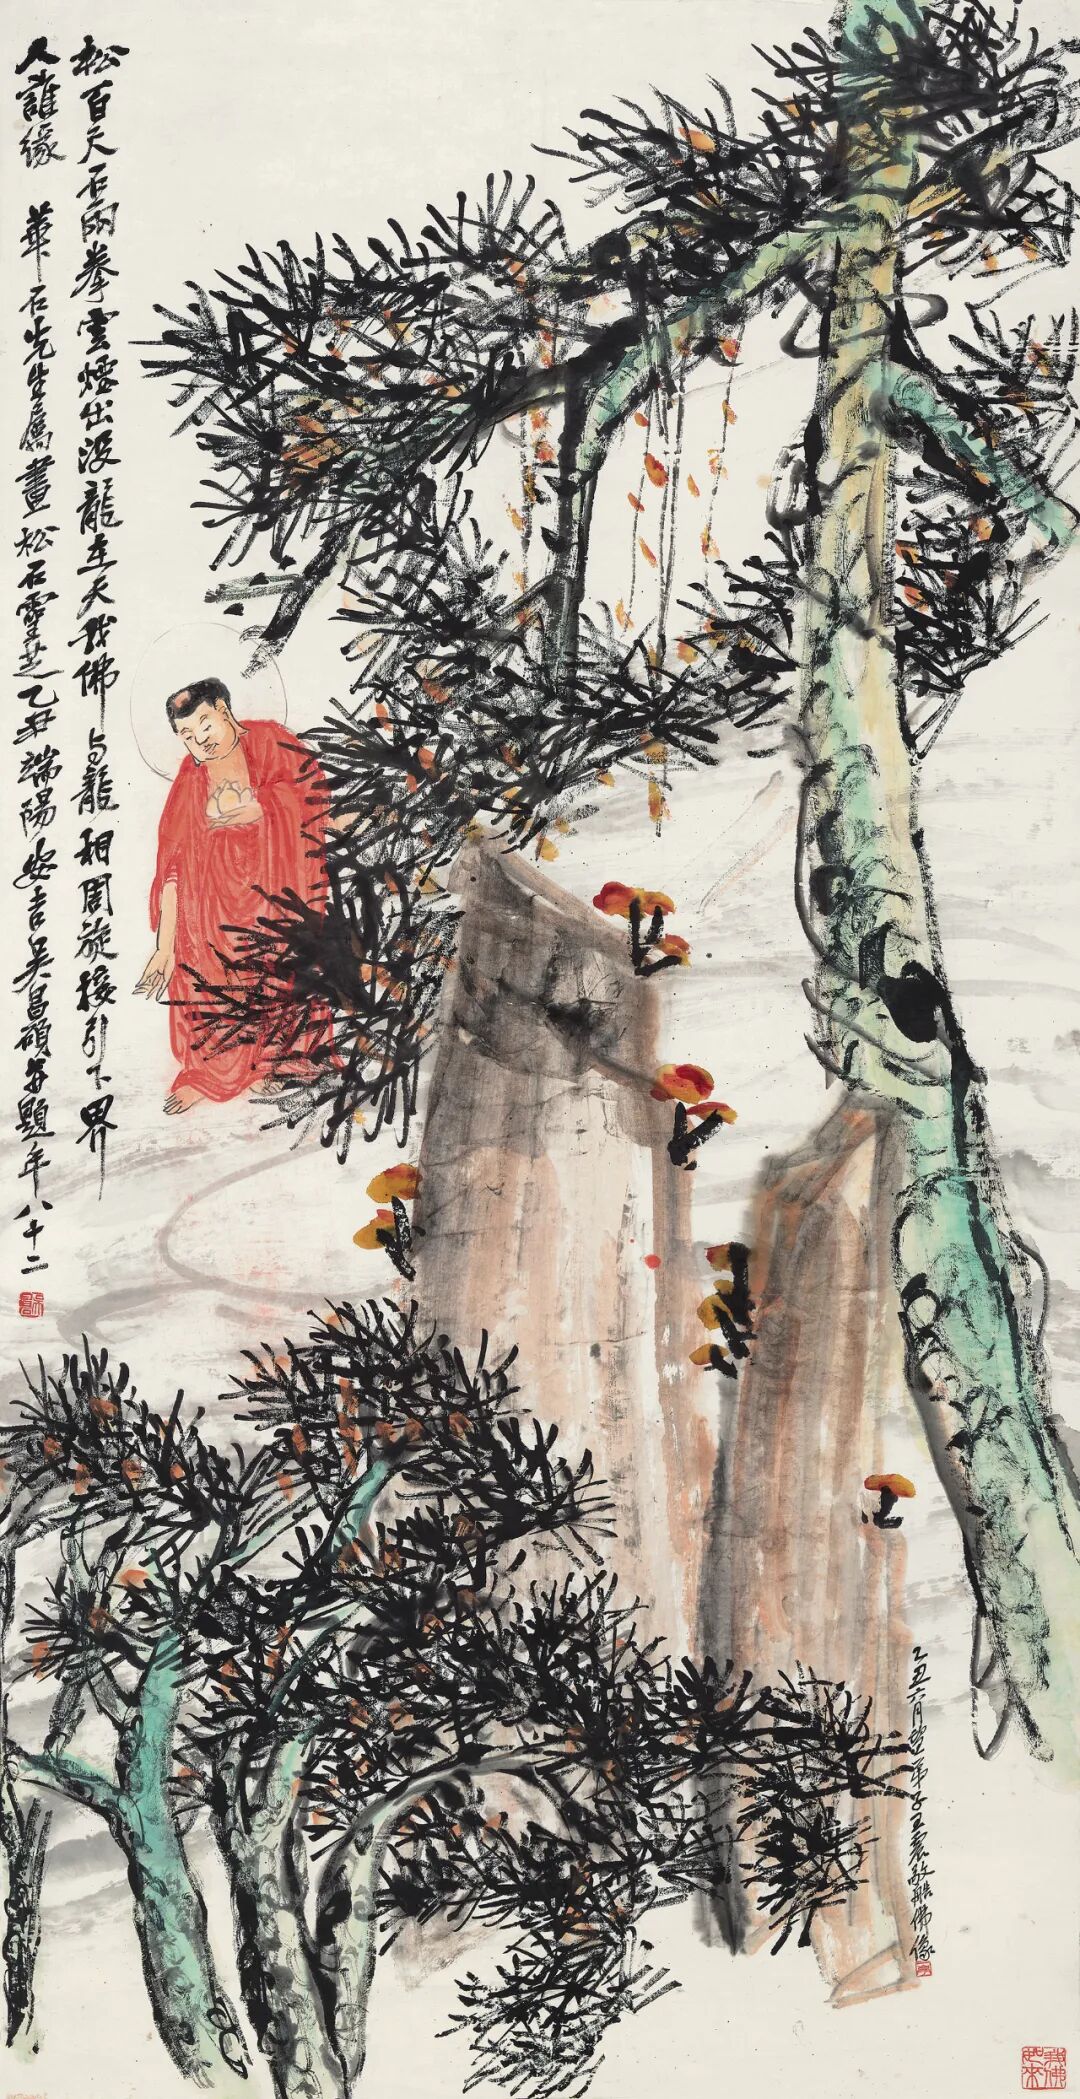 松百尺石兩拳雲煙出没龍在天我佛与龍相周旋接引下界
人誰緣 華石先生屬畫松石靈芝乙丑端陽安吉吳昌碩並題年八十二
乙丑六月望弟子王震敬艁佛像
我佛
如來